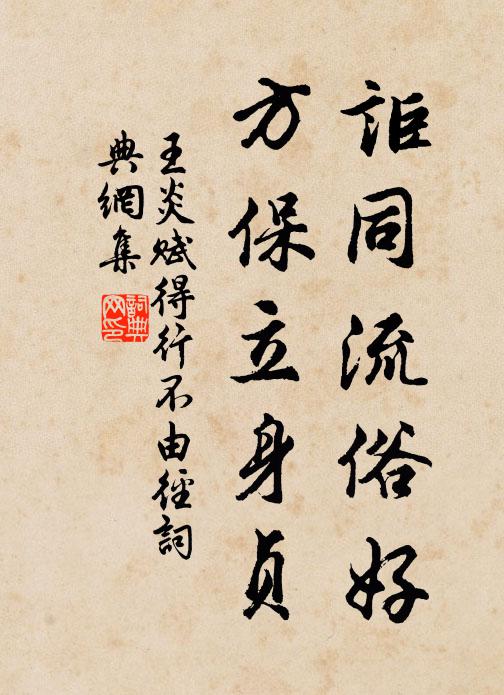 詎同流俗好
方保立身貞
王炎賦得行不由徑詞
典網集
詞典
网印